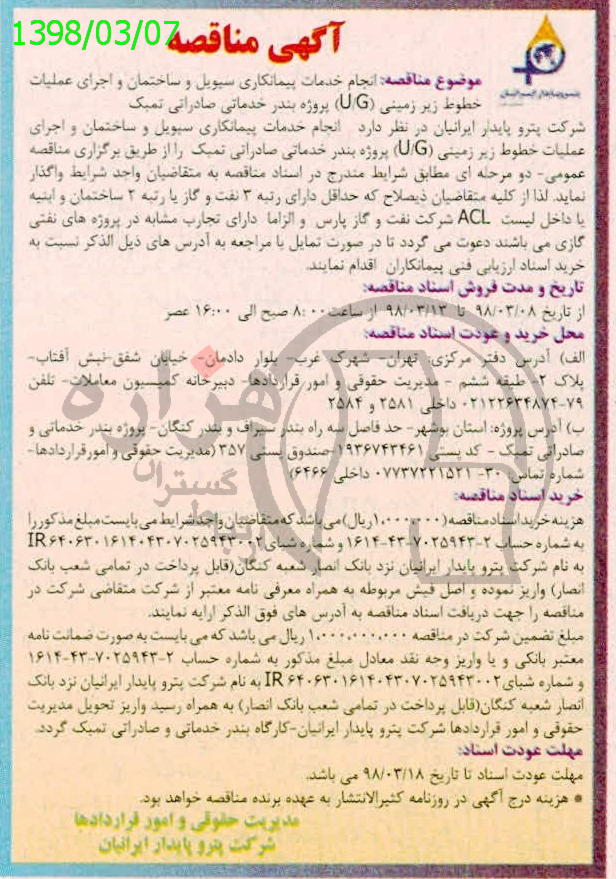 1398/03/07
آگهی مناقصه
موضوع مناقصه: انجام خدمات پیمانکاری سیویل و ساختمان و اجرای عملیات
خطوط زیر زمینی (U/G) پروژه بندر خدماتی صادراتی تمبک
شرکت پترو پایدار ایرانیان در نظر دارد انجام خدمات پیمانکاری سیویل و ساختمان و اجرای
عملیات خطوط زیر زمینی (U/G) پروژه بندر خدماتی صادراتی تمبک را از طریق برگزاری مناقصه
عمومی- دو مرحله ای مطابق شرایط مندرج در اسناد مناقصه به متقاضیان واجد شرایط واگذار
نماید. لذا از کلیه متقاضیان ذیصلاح که حداقل دارای رتبه ۳ نفت و گاز یا رتبه ۲ ساختمان و ابنیه
یا داخل لیست ACL شرکت نفت و گاز پارس و الزاما دارای تجارب مشابه در پروژه های نفتی
گازی می باشند دعوت می گردد تا در صورت تمایل با مراجعه به آدرس های ذیل الذکر نسبت به
خرید اسناد ارزیابی فنی پیمانکاران اقدام نمایند.
تاریخ و مدت فروش اسناد مناقصه:
از تاریخ ۹۸/۰۳/۰۸ تا ۹۸/۰۳/۱۳ از ساعت ۸:۰۰ صبح الی ۱۶:۰۰ عصر
محل خرید و عودت اسناد مناقصه:
الف) آدرس دفتر مرکزی: تهران- شهرک غرب- بلوار دادمان- خیابان شفق-نبش آفتاب-
پلاک ۲- طبقه ششم - مدیریت حقوقی و امور قراردادها- دبیرخانه کمیسیون معاملات- تلفن
۰۲۱۲۲۶۳۴۸۷۴-۷۹ داخلی ۲۵۸۱ و ۲۵۸۴
ب) آدرس پروژه: استان بوشهر- حد فاصل سه راه بندر سیراف و بندر کنگان- پروژه بندر خدماتی و
صادراتی تمبک - کد پستی ۱۹۳۶۷۴۳۴۶۱-صندوق پستی ۳۵۷ (مدیریت حقوقی و امور قراردادها-
شماره تماس: ۳۰-۰۷۷۳۷۲۲۱۵۲۱ داخلی ۶۴۶۶)
خرید اسناد مناقصه:
هزینه خرید اسناد مناقصه (۱،۰۰۰،۰۰۰ ریال) می باشد که متقاضیان واجد شرایط می بایست مبلغ مذکور را
به شماره حساب ۲-۷۰۲۵۹۴۳-۴۳-۱۶۱۴ و شماره شبای IR ۶۴۰۶۳۰۱۶۱۴۰۴۳۰۷۰۲۵۹۴۳۰۰۲
به نام شرکت پترو پایدار ایرانیان نزد بانک انصار شعبه کنگان(قابل پرداخت در تمامی شعب بانک
انصار) واریز نموده و اصل فیش مربوطه به همراه معرفی نامه معتبر از شرکت متقاضی شرکت در
مناقصه را جهت دریافت اسناد مناقصه به آدرس های فوق الذکر ارایه نمایند.
مبلغ تضمین شرکت در مناقصه ۱،۰۰۰،۰۰۰،۰۰۰ ریال می باشد که می بایست به صورت ضمانت نامه
معتبر بانکی و یا واریز وجه نقد معادل مبلغ مذکور به شماره حساب ۲-۷۰۲۵۹۴۳-۴۳-۱۶۱۴
و شماره شبای IR ۶۴۰۶۳۰۱۶۱۴۰۴۳۰۷۰۲۵۹۴۳۰۰۲ به نام شرکت پترو پایدار ایرانیان نزد بانک
انصار شعبه کنگان(قابل پرداخت در تمامی شعب بانک انصار) به همراه رسید واریز تحویل مدیریت
حقوقی و امور قراردادها شرکت پترو پایدار ایرانیان-کارگاه بندر خدماتی و صادراتی تمبک گردد.
مهلت عودت اسناد:
مهلت عودت اسناد تا تاریخ ۹۸/۰۳/۱۸ می باشد.
● هزینه درج آگهی در روزنامه کثیرالانتشار به عهده برنده مناقصه خواهد بود.
مدیریت حقوقی و امور قراردادها
شرکت پترو پایدار ایرانیان
هزاره
گستران